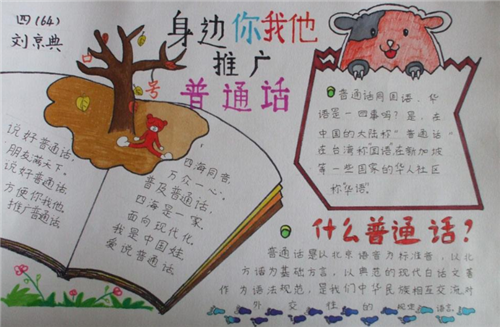 四(64)
刘京典
身边你我他
推广
普通话
说好普通话,
朋友满天下,
说好普通话
方便你我他,
推广普通话
四海同音,
万众一心,
普及普通话
四海是一家,
面向现代化,
我是中国娃,
爱说普通话.
普通话同国语、华
语是一回事吗?是,在
中国的大陆称"普通话"
在台湾称国语在新加坡
等一些国家的华人社区
称华语.
什么普通话?
普通话是以北京语音为标准音,以北
方话为基础方言,以典范的现代白话文著
作为语法规范,是我们中华民族相互交流对
外交往的 语言.